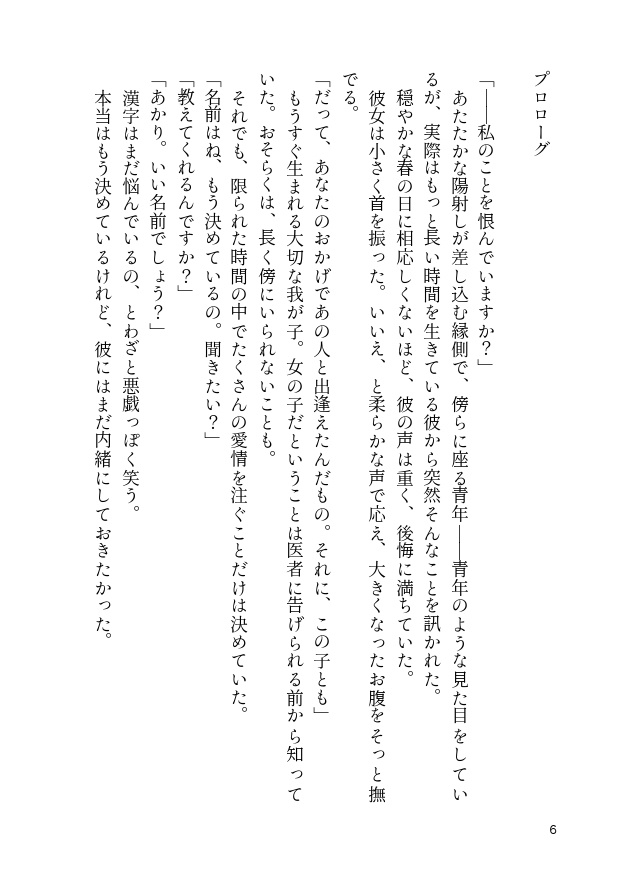 プロローグ
「――私のことを恨んでいますか？」
　あたたかな陽射しが差し込む縁側で、傍らに座る青年――青年のような見た目をしてい
るが、実際はもっと長い時間を生きている彼から突然そんなことを訊かれた。
　穏やかな春の日に相応しくないほど、彼の声は重く、後悔に満ちていた。
　彼女は小さく首を振った。いいえ、と柔らかな声で応え、大きくなったお腹をそっと撫
でる。
「だって、あなたのおかげであの人と出逢えたんだもの。それに、この子とも」
　もうすぐ生まれる大切な我が子。女の子だということは医者に告げられる前から知って
いた。おそらくは、長く傍にいられないことも。
　それでも、限られた時間の中でたくさんの愛情を注ぐことだけは決めていた。
「名前はね、もう決めているの。聞きたい？」
「教えてくれるんですか？」
「あかり。いい名前でしょう？」
　漢字はまだ悩んでいるの、とわざと悪戯っぽく笑う。
　本当はもう決めているけれど、彼にはまだ内緒にしておきたかった。
6